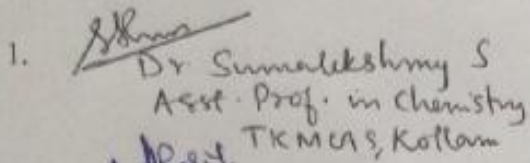 1.
Dr Sumalekshmy S
Asst. Prof. in Chemistry
TKMCAS, Kollam